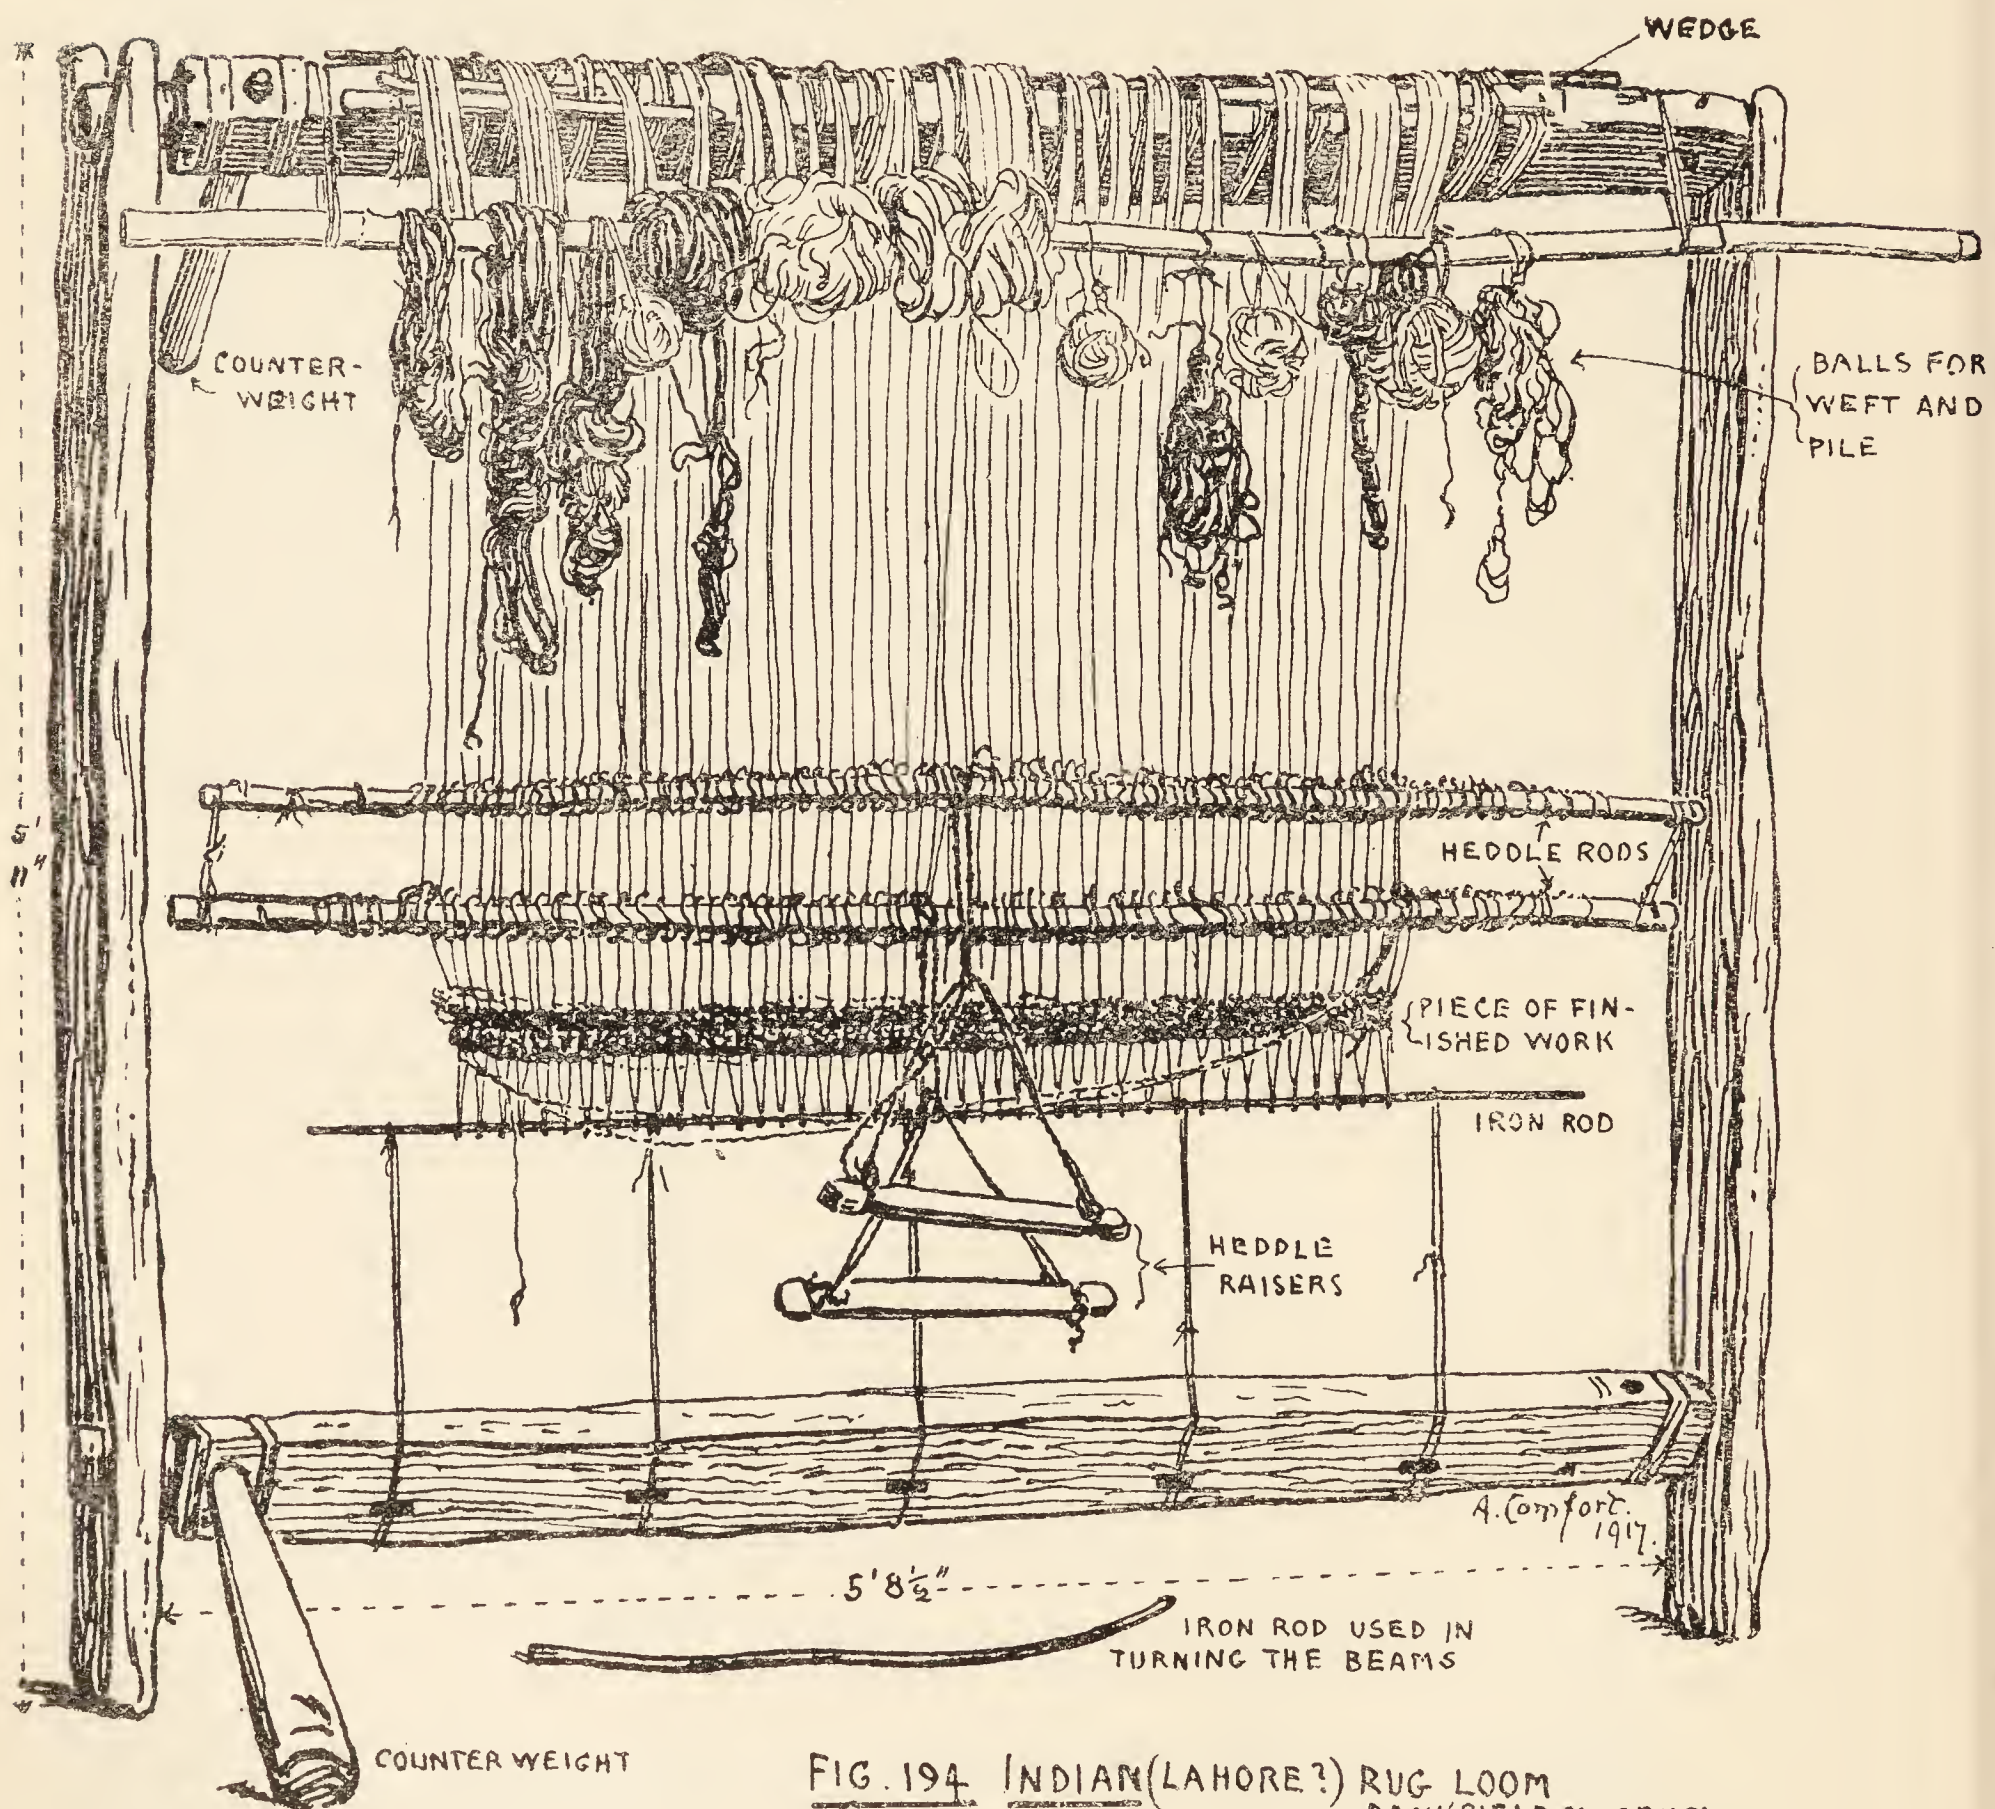 WEDGE
COUNTER-
WEIGHT
BALLS FOR
WEFT AND
PILE
5'
11"
HEDDLE RODS
PIECE OF FIN-
ISHED WORK
IRON ROD
HEDDLE
RAISERS
A. Comfort.
1917.
5' 8½"
IRON ROD USED IN
TURNING THE BEAMS
COUNTER WEIGHT
FIG. 194 INDIAN (LAHORE?) RUG LOOM